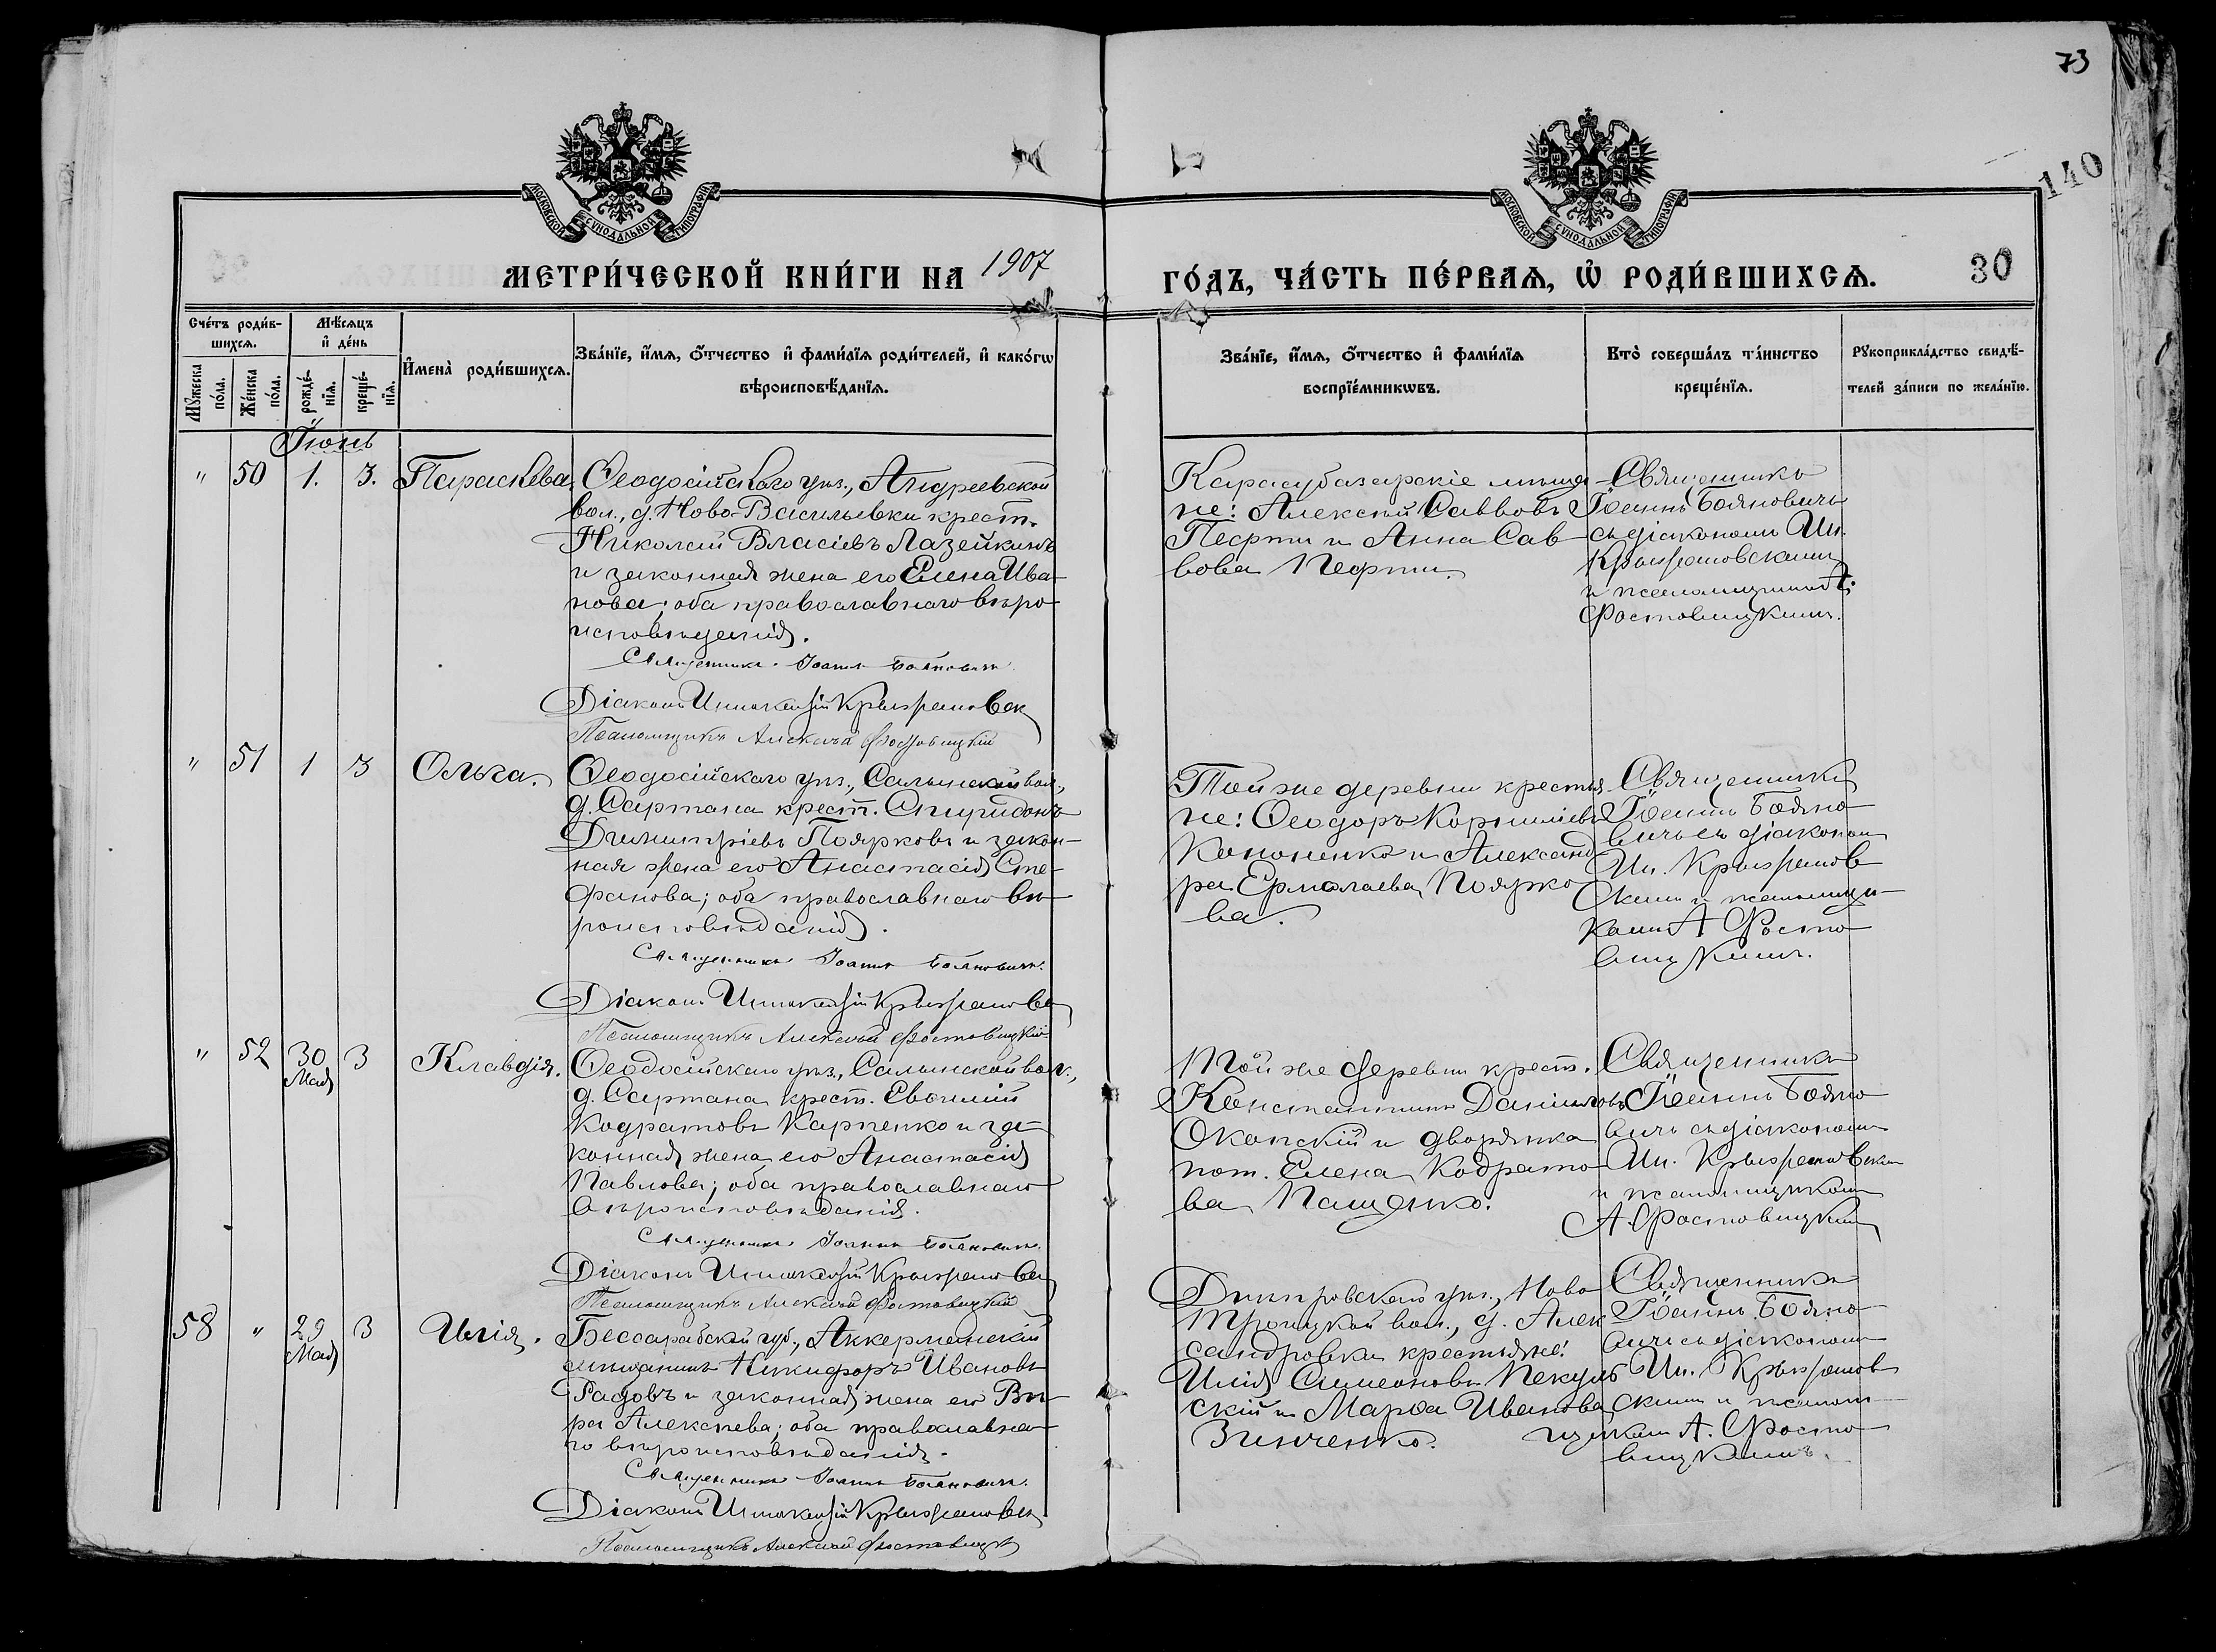 73
140
МОСКОВСКОЙ СУНОДАЛЬНОЙ ТИПОГРАФІИ
МОСКОВСКОЙ СУНОДАЛЬНОЙ ТИПОГРАФІИ
МЕТРИ́ЧЕСКОЙ КНИ́ГИ НА 1907
ГО́ДЪ, ЧА́СТЬ ПЕ́РВАѦ, Ѡ҆ РОДИ́ВШИХСѦ.
30
Сче́тъ роди́в-
шихсѧ.
Мѣ́сѧцъ
и҆ де́нь
Мꙋ́жеска по́ла.
Же́нска по́ла.
рожде́-
нїѧ.
креще́-
нїѧ.
И҆мена̀ роди́вшихсѧ.
Зва́нїе, и҆́мѧ, ѻ҆́тчество и҆ фами́лїѧ роди́телей, и҆ како́гѡ
вѣроисповѣ́данїѧ.
Зва́нїе, и҆́мѧ, ѻ҆́тчество и҆ фами́лїѧ
воспрїе́мникѡвъ.
Кто̀ соверша́лъ та́инство
креще́нїѧ.
Рꙋкоприкла́дство свидѣ́-
телей за́писи по жела́нїю.
Іюнь
" 50 1. 3. Параскева.
Ѳеодосійскаго уѣз., Андреевской
вол., д. Ново-Васильевки крест.
Николай Власіевъ Лазейкинъ
и законная жена его Елена Ива-
нова; оба православнаго вѣро-
исповѣданія.
Священникъ Іоаннъ Бояновичъ
Діаконъ Иннокентій Крыжановск
Псаломщикъ Алексѣй Фостовицкій
Карасубазарскіе мѣща-
не: Алексѣй Саввовъ
Пефти и Анна Сав-
вова Пефти.
Священникъ
Іоаннъ Бояновичъ
съ діакономъ Ин.
Крыжановскимъ
и псаломщикомъ А.
Фостовицкимъ.
" 51 1 3 Ольга.
Ѳеодосійскаго уѣз., Салынской вол.,
д. Сартана крест. Спиридонъ
Димитріевъ Поярковъ и закон-
ная жена его Анастасія Сте-
фанова; оба православнаго вѣ-
роисповѣданія.
Священникъ Іоаннъ Бояновичъ.
Діаконъ Иннокентій Крыжановс
Псаломщикъ Алексѣй Фостовицкій
Той же деревни крестья-
не: Ѳеодоръ Корниліевъ
Кононенко и Александ-
ра Ермолаева Поярко-
ва.
Священникъ
Іоаннъ Бояно-
вичъ съ діаконом
Ин. Крыжанов-
скимъ и псаломщи-
комъ А Фосто-
вицкимъ.
" 52 30 3 Клавдія.
Мая
Ѳеодосійскаго уѣз., Салынской вол.,
д. Сартана крест. Евѳимій
Кодратовъ Карпенко и за-
конная жена его Анастасія
Павлова; оба православнаго
вѣроисповѣданія.
Священникъ Іоаннъ Бояновичъ.
Діаконъ Иннокентій Крыжановс
Псаломщикъ Алексѣй Фостовицкій
Той же деревни крест.
Константинъ Даниловъ
Оконскій и дворянка
пот. Елена Кодрато-
ва Пащенко.
Священникъ
Іоаннъ Бояно-
вичъ съ діакономъ
Ин. Крыжановским
и псаломщикомъ
А. Фостовицким
58 " 29 3 Илія.
Мая
Бессарабской губ., Аккерманскій
мѣщанинъ Никифоръ Ивановъ
Радовъ и законная жена его Вѣ-
ра Алексѣева; оба православна-
го вѣроисповѣданія.
Священникъ Іоаннъ Бояновичъ.
Діаконъ Иннокентій Крыжановск
Псаломщикъ Алексѣй Фостовицк
Днѣпровскаго уѣз., Ново-
Троицкой вол., д. Алек-
сандровки крестьяне:
Илія Симеоновъ Пекуль-
скій и Марѳа Иванова
Зинченко.
Священникъ
Іоаннъ Бояно-
вичъ съ діакономъ
Ин. Крыжанов-
скимъ и псалом-
щикомъ А. Фосто-
вицкимъ.